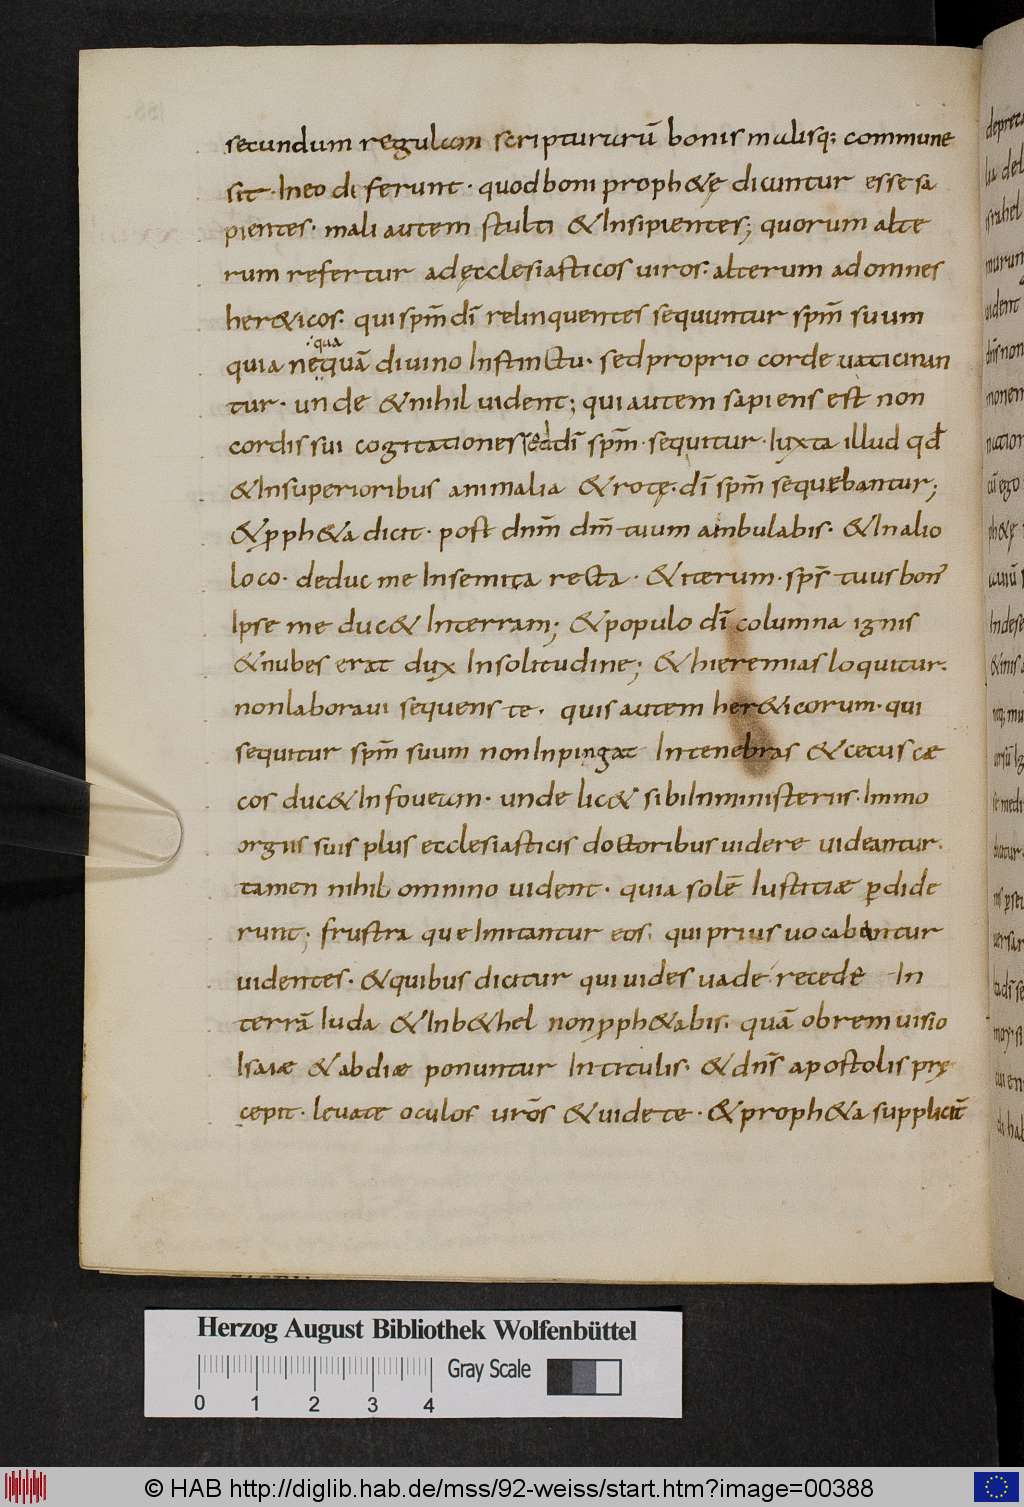 secundum regulam scripturarū bonis malisq; commune
sit · Ineo diferunt · quod boni proph&ę dicuntur esse sa
pientes · mali autem stulti & Insipientes; quorum alte
rum refertur ad ęcclesiasticos uiros · alterum ad omnes
her&icos · qui spm̄ dī relinquentes sequuntur spm̄ suum
·qua
quia nequā diuino Instinctu · sed proprio corde uaticinan
tur · unde & nihil uident; qui autem sapiens est non
cordis sui cogitationes sed dī spm̄ · sequitur · Iuxta illud qđ
& Insuperioribus animalia & rotę · dī spm̄ sequebantur;
& pph&a dicit · post dnm̄ dm̄ tuum ambulabis · & In alio
loco · deduc me Insemita recta · & iterum · sps̄ tuus bon'
Ipse me duc& Interram; & populo dī columna ignis
& nubes erat dux Insolitudine; & hieremias loquitur ·
non laboraui sequens te · quis autem her&icorum · qui
sequitur spm̄ suum non Inpingat Intenebras & cecus cæ
cos duc& Infoueam · unde lic& sibi Inministeriis · Immo
orgiis suis plus ecclesiasticis doctoribus uidere uideantur ·
tamen nihil omnino uident · quia solē Iustitiæ pdide
runt; frustra que Imitantur eos · qui prius uocabantur
uidentes · & quibus dicitur qui uides uade recede In
terrā Iuda & Inb&hel non pph&abis · quā obrem uisio
Isaiæ & abdiæ ponuntur Intitulis · & dns̄ apostolis prę
cepit · leuate oculos uros̄ & uidete · & proph&a supplicit̄
depreca
lia del
israhel
murum
uident
dns̄ non
monem
nation
cū ego
ph&ę
Indese
Herzog August Bibliothek Wolfenbüttel
Gray Scale
0 1 2 3 4
© HAB http://diglib.hab.de/mss/92-weiss/start.htm?image=00388